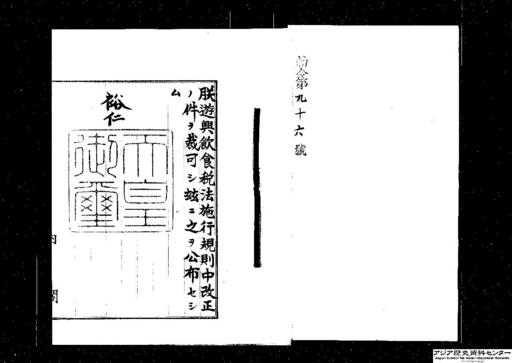 勅令第九十六號
朕遊興飲食税法施行規則中改正
ノ件ヲ裁可シ玆ニ之ヲ公布セシ
ム
裕仁
天皇
御璽
内閣
アジア歴史資料センター
Japan Center for Asian Historical Records